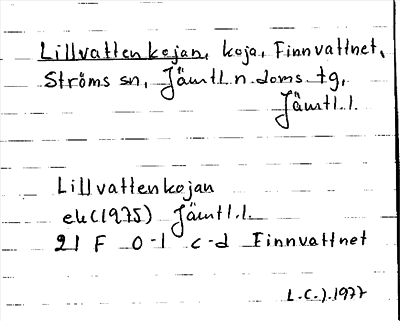 Lillvattenkojan, koja, Finnvattnet,
Ströms sn, Jämtl.n.doms.tg,
Jämtl.l.
Lillvattenkojan
ek(1975) Jämtl.l.
21 F 0-1 c-d Finnvattnet
L.C.J.1977